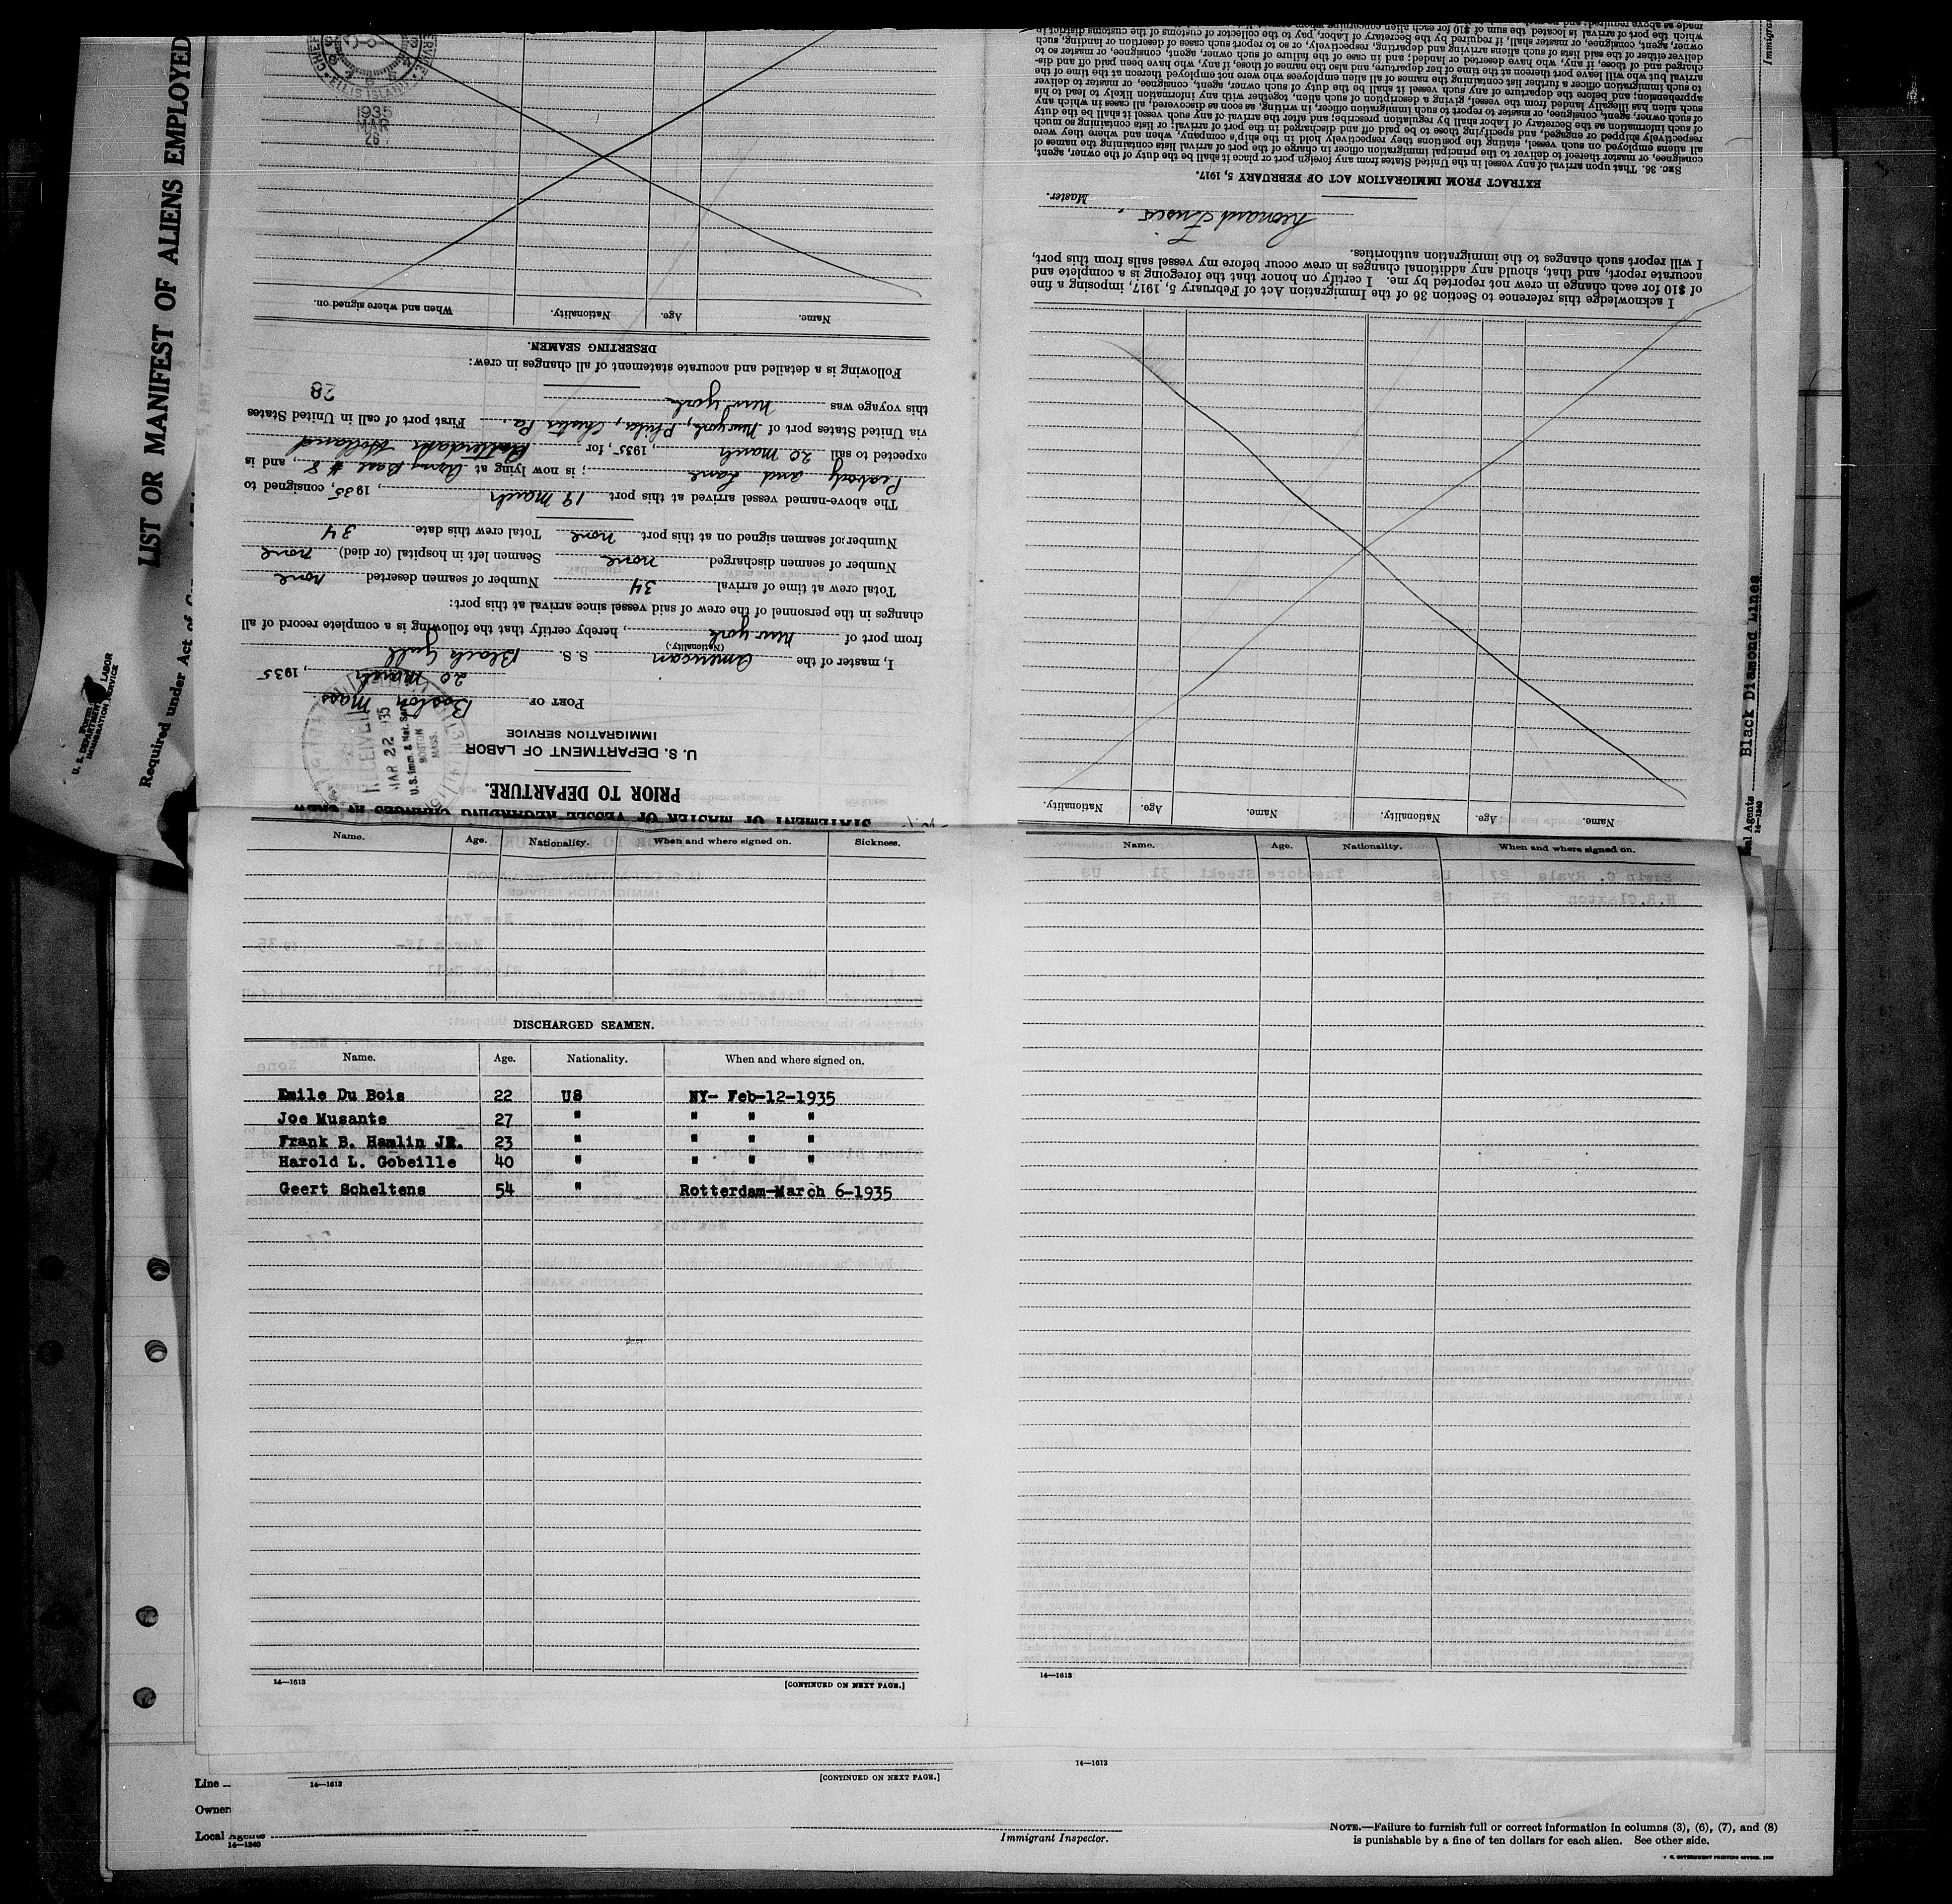 LIST OR MANIFEST OF ALIENS EMPLOYED
Required under Act of
U. S. DEPARTMENT OF LABOR
IMMIGRATION SERVICE
PRIOR TO DEPARTURE.
U. S. DEPARTMENT OF LABOR
IMMIGRATION SERVICE
RECEIVED
MAR 22 1935
U.S. Imm. & Nat. Serv.
BOSTON
MASS.
PORT OF Boston Mass
20 March, 1935
I, master of the American S. S. Black Gull
(Nationality.)
from port of New York, hereby certify that the following is a complete record of all
changes in the personnel of the crew of said vessel since arrival at this port:
Total crew at time of arrival 34 Number of seamen deserted none
Number of seamen discharged none Seamen left in hospital (or died) none
Number of seamen signed on at this port none Total crew this date 34
The above-named vessel arrived at this port 19 March, 1935, consigned to
Peabody and Lane; is now lying at Army Base #8, and is
expected to sail 20 March, 1935, for Rotterdam Holland
via United States port of New York, Phila, Chester Pa. First port of call in United States
this voyage was New York
28
Following is a detailed and accurate statement of all changes in crew:
DESERTING SEAMEN.
Name. Age. Nationality. When and where signed on.
ELLIS ISLAND
1935
MAR
26
Name. Age. Nationality. Name. Age. Nationality.
I acknowledge this reference to Section 36 of the Immigration Act of February 5, 1917, imposing a fine
of $10 for each change in crew not reported by me. I certify on honor that the foregoing is a complete and
accurate report, and that, should any additional changes in crew occur before my vessel sails from this port,
I will report such changes to the immigration authorities.
Master.
EXTRACT FROM IMMIGRATION ACT OF FEBRUARY 5, 1917.
SEC. 36. That upon arrival of any vessel in the United States from any foreign port or place it shall be the duty of the owner, agent,
consignee, or master thereof to deliver to the principal immigration officer in charge of the port of arrival lists containing the names of
all aliens employed on such vessel, stating the positions they respectively hold in the ship's company, when and where they were
respectively shipped or engaged, and specifying those to be paid off and discharged in the port of arrival; or lists containing so much
of such information as the Secretary of Labor shall by regulation prescribe; and after the arrival of any such vessel it shall be the duty
of such owner, agent, consignee, or master to report to such immigration officer, in writing, as soon as discovered, all cases in which any
such alien has illegally landed from the vessel, giving a description of such alien, together with any information likely to lead to his
apprehension; and before the departure of any such vessel it shall be the duty of such owner, agent, consignee, or master to deliver
to such immigration officer a further list containing the names of all alien employees who were not employed thereon at the time of the
arrival but who will leave port thereon at the time of her departure, and also the names of those, if any, who have been paid off and dis-
charged and of those, if any, who have deserted or landed; and in case of the failure of such owner, agent, consignee, or master so to
deliver either of the said lists of such aliens arriving and departing, respectively, or so to report such cases of desertion or landing, such
owner, agent, consignee, or master shall, if required by the Secretary of Labor, pay to the collector of customs of the customs district in
which the port of arrival is located the sum of $10 for each alien concerning whom
Black Diamond Lines
al Agents
14—1240
Name. Age. Nationality. When and where signed on. Sickness.
DISCHARGED SEAMEN.
Name. Age. Nationality. When and where signed on.
Emile Du Bois 22 US NY- Feb-12-1935
Joe Musante 27 " " " "
Frank B. Hamlin JR. 23 " " " "
Harold L. Gobeille 40 " " " "
Geert Scheltens 54 " Rotterdam-March 6-1935
14—1613 [CONTINUED ON NEXT PAGE.]
Name. Age. Nationality. When and where signed on.
14—1613
14—1613 [CONTINUED ON NEXT PAGE.]
14—1613
Line
Owner
Local Agents
14—1240
Immigrant Inspector.
NOTE.—Failure to furnish full or correct information in columns (3), (6), (7), and (8)
is punishable by a fine of ten dollars for each alien. See other side.